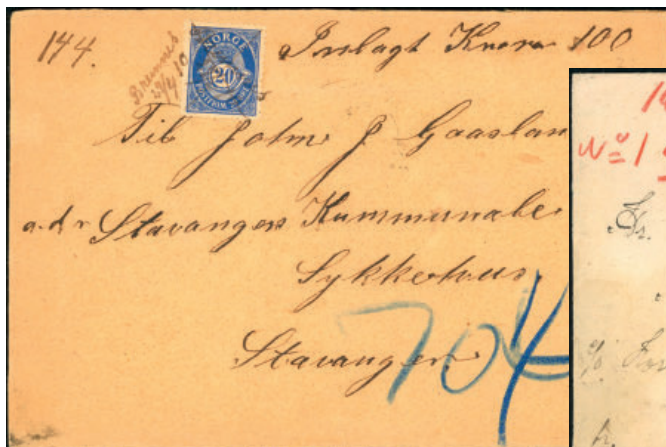 144.
Bremnes
23/4 10
NORGE
20
POSTFRIM
Indlagt Kroner 100
Til John J Gaaslan
adr Stavangers Kummunale
Sykkehus
Stavanger
704
No 1
Hr.